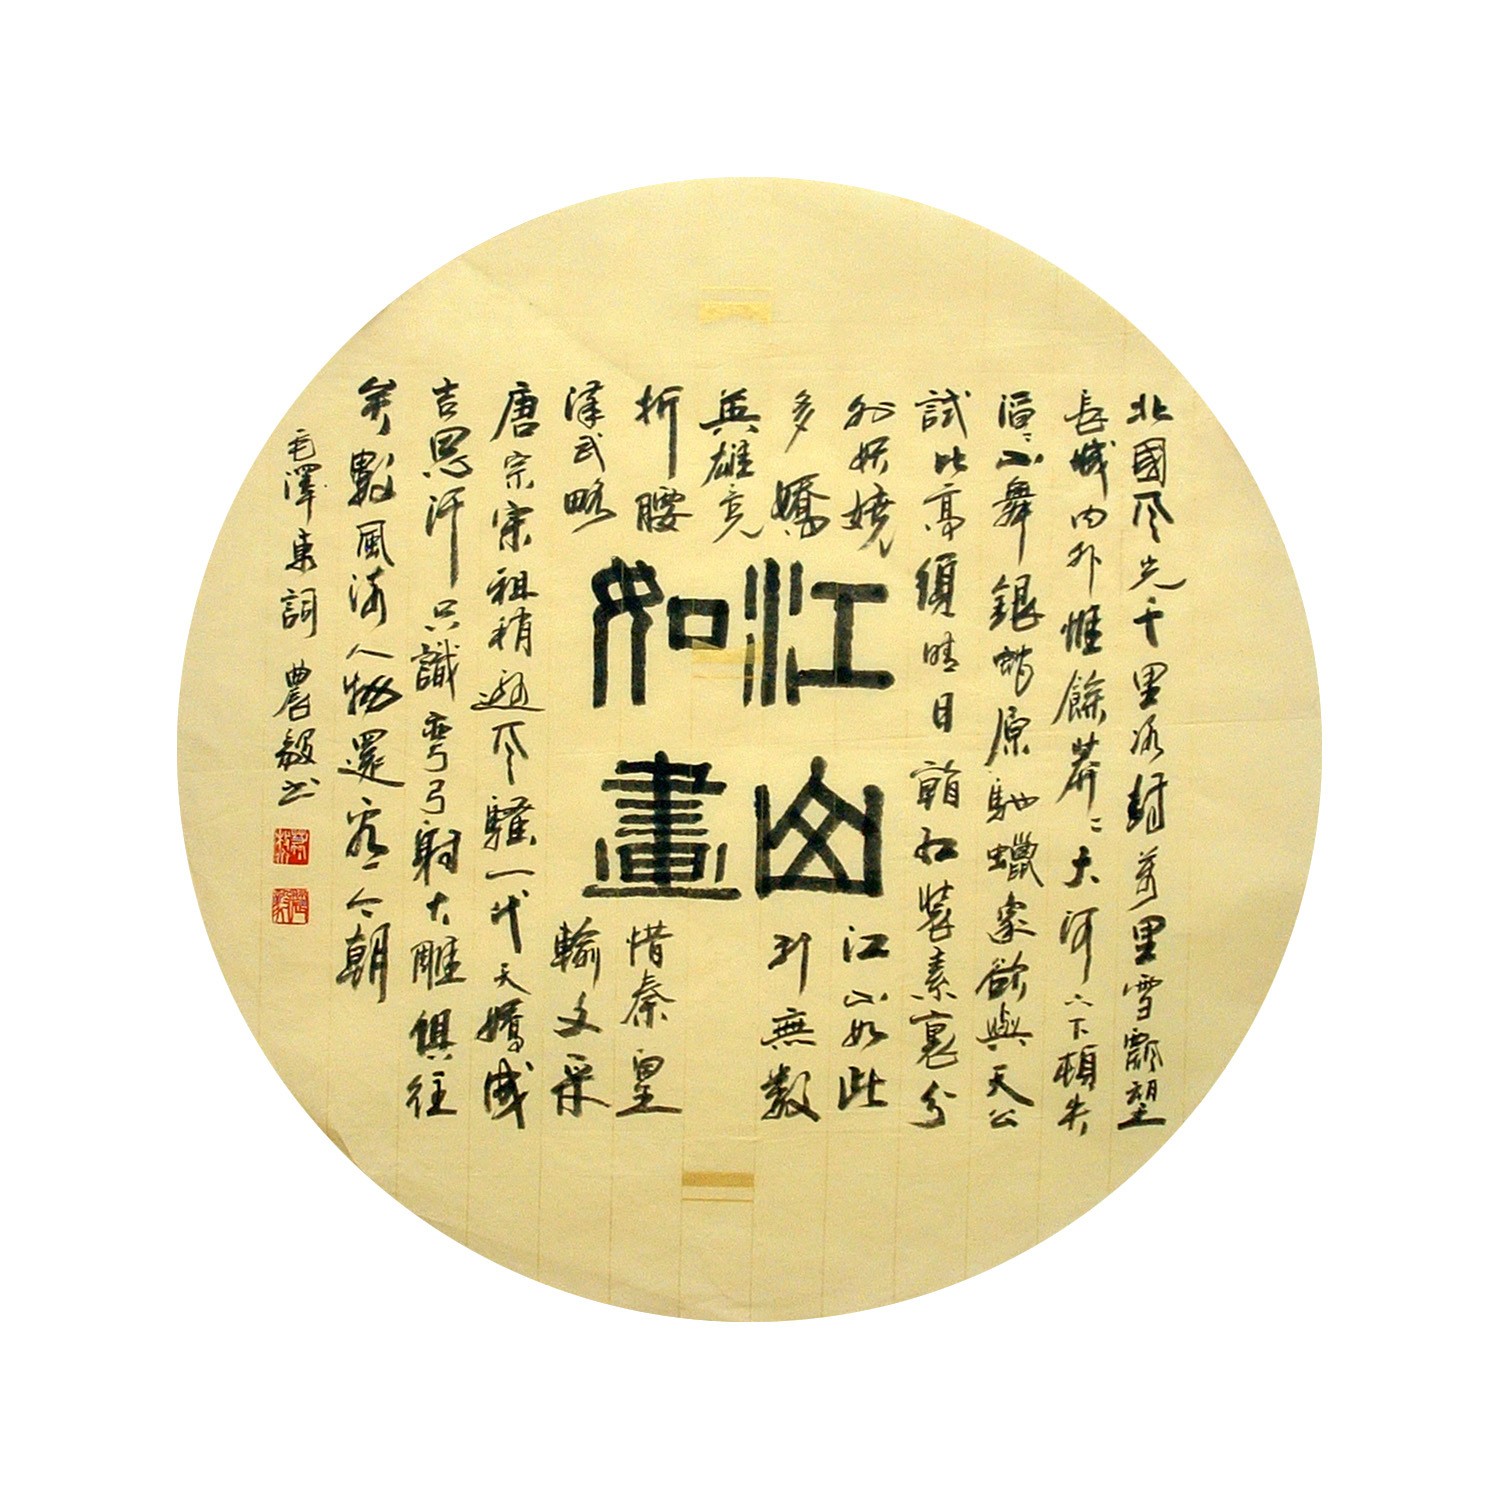 北國风光千里冰封萬里雪飄望
長城内外惟餘莽々大河上下頓失
滔々山舞銀蛇原馳蠟象欲與天公
試比高須晴日看紅裝素裹分
外妖嬈江山如此
多嬌引無數
英雄竞
折腰惜秦皇
漢武略輸文采
唐宗宋祖稍遜风騷一代天嬌成
吉思汗只識彎弓射大雕俱往
矣數風流人物還看今朝
毛澤東詞 農毅书
江山
如畫